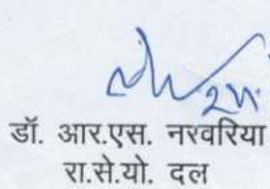 डॉ. आर.एस. नरवरिया
रा.से.यो. दल